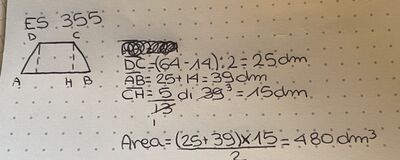 ES 355
D C
A H B
DC=(64-14):2=25dm
AB=25+14=39dm
CH=5/13 di 39³=15dm
1
Area=(25+39)×15=480dm³
2